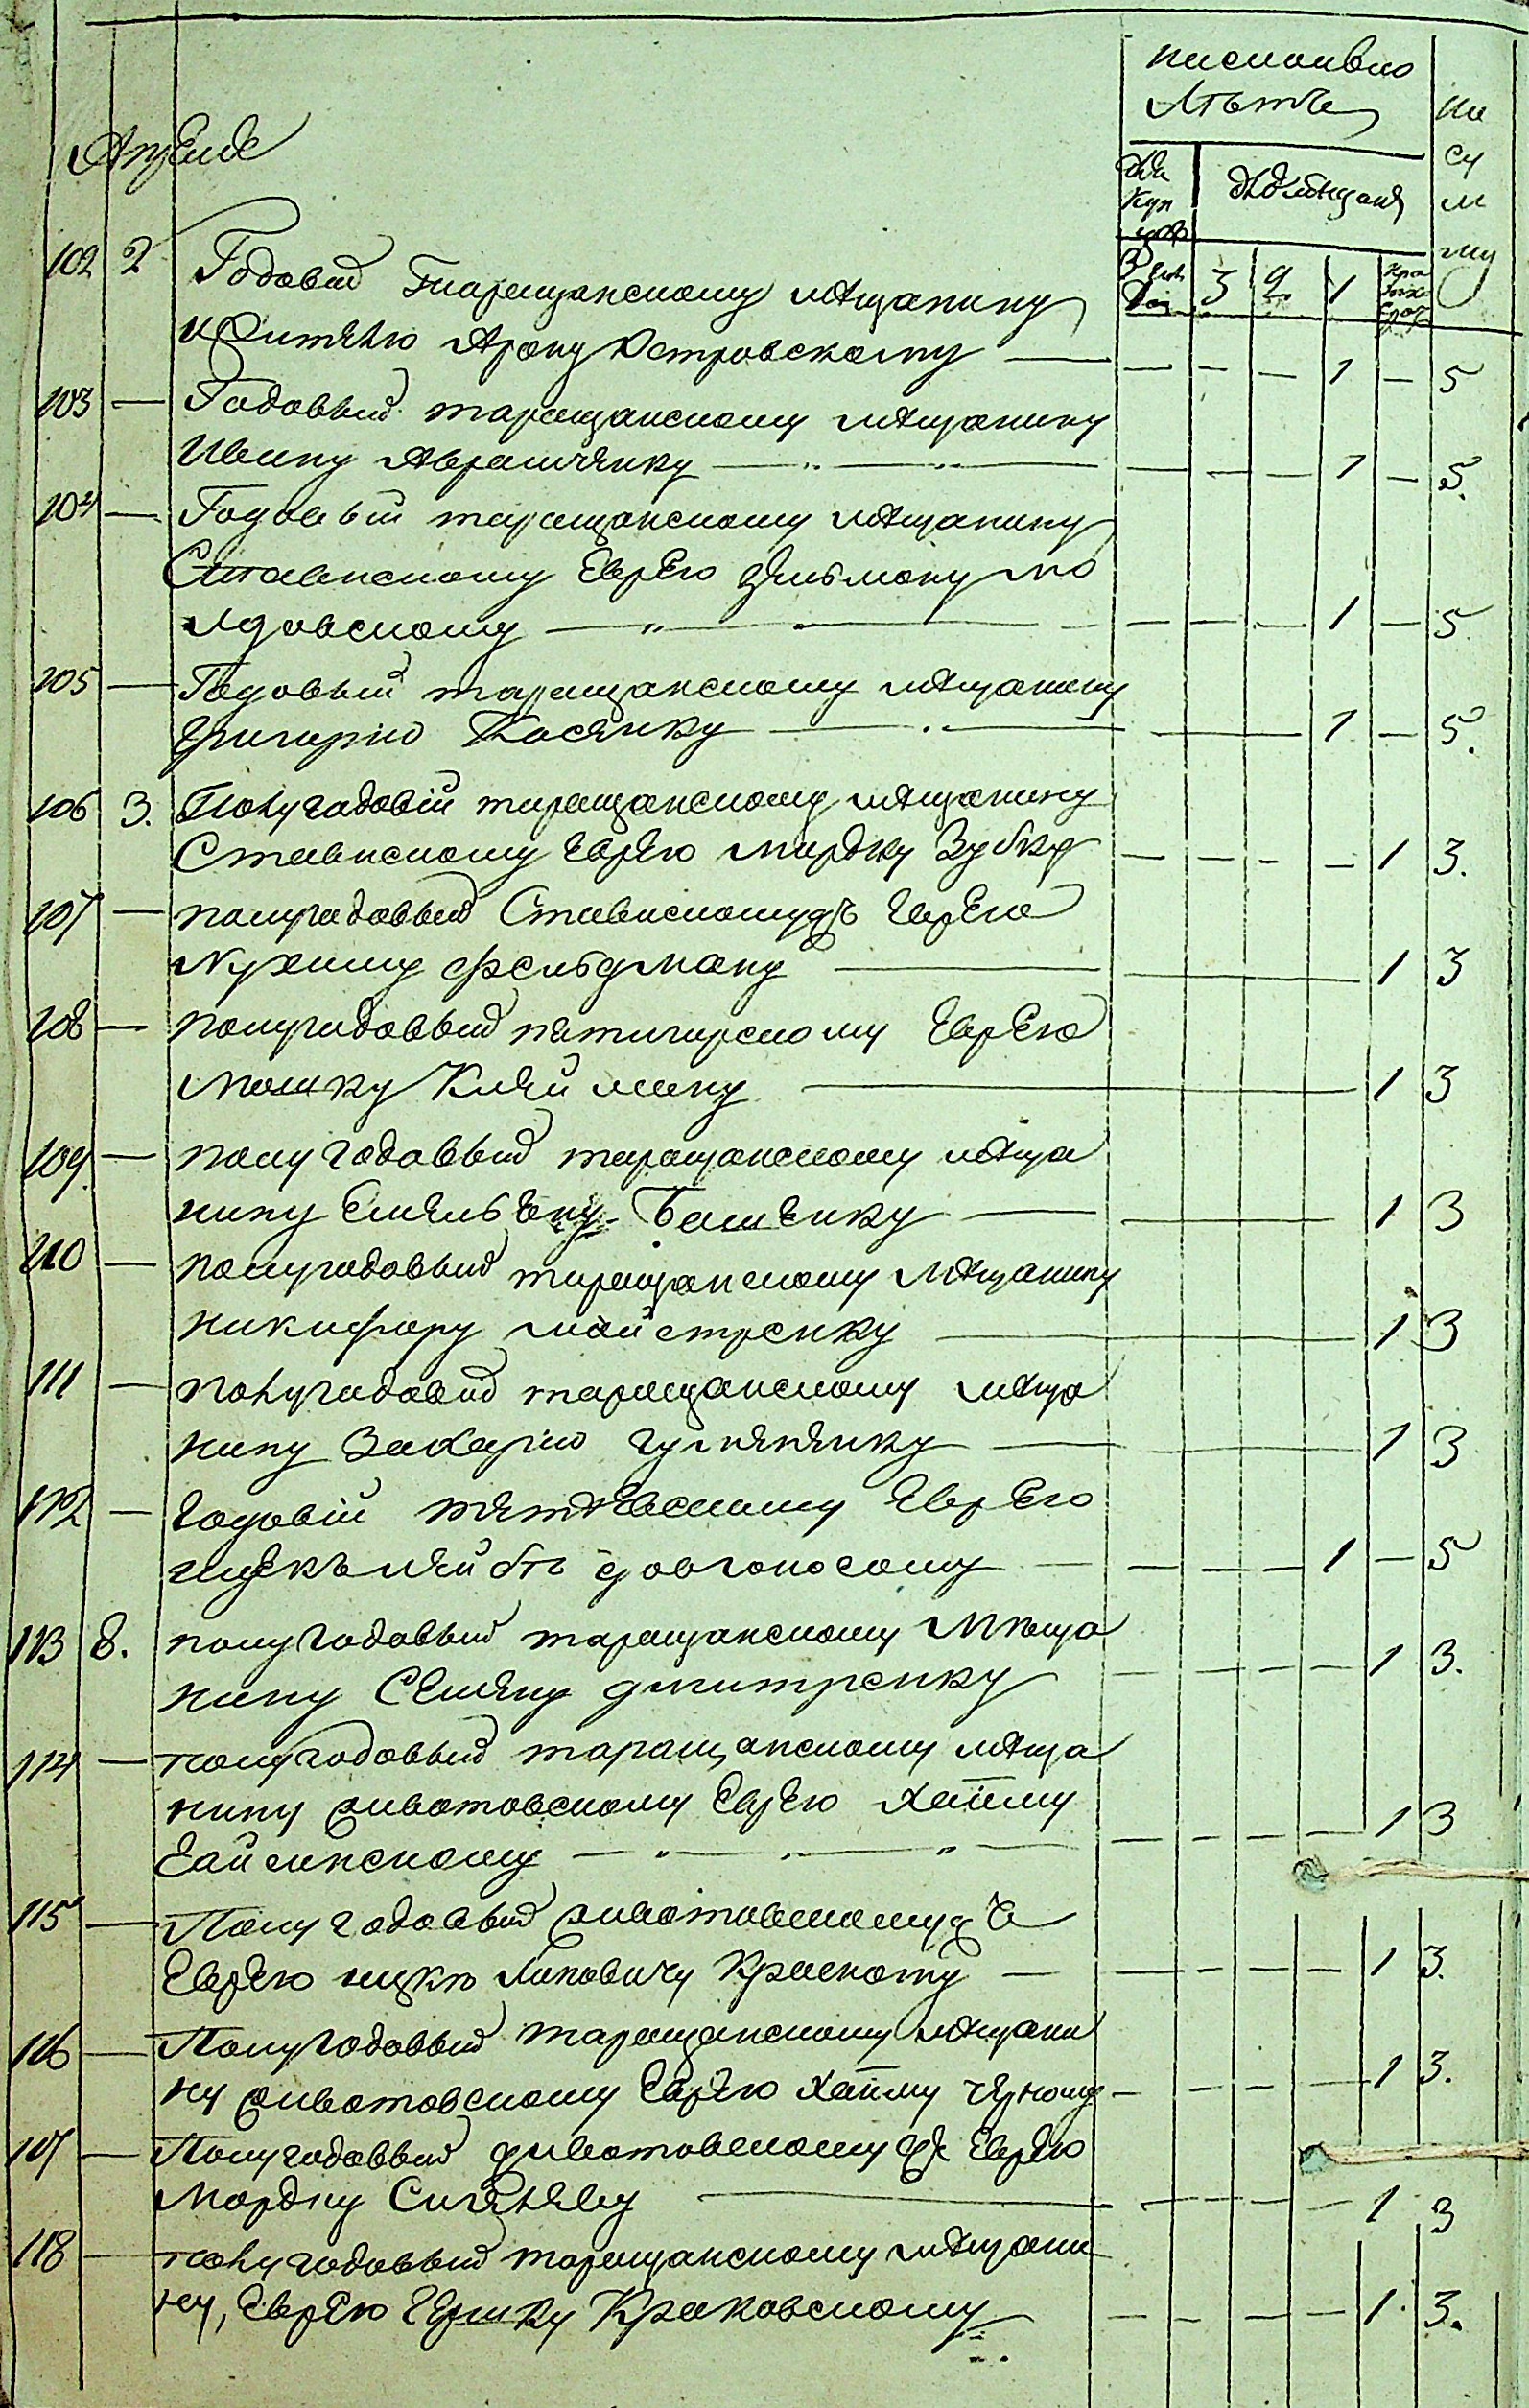 Апреля
на сколько
Лѣтъ
на
су
м
му
Для
куп
цовъ
для мѣщанъ
3 2 1
102 2 Годовой Таращанскому мѣщанину
и жителю Арону Островскому — — — — 1 — 5
103 — Годовый таращанскому мѣщанину
Ивану Авраменку — — — — 1 — 5.
104 — Годовый таращанскому мѣщанину
Ставискому Еврею Зельману Мо
лдовскому — — — — 1 — 5
105 — Годовый таращанскому мѣщанину
Григорию Косенку — — 1 — 5.
106 3. Полугодовій таращанскому мѣщанину
Ставискому еврею Мордку Зубку — — — — 1 3.
107 — полугодовый Ставискому Еврею
Нухиму Фельдману — — 1 3
108 — полугодовый пятигорскому Еврею
Мошку Клейману — 1 3
109. — полугодовый таращанскому мѣща
нину Башенку — — 1 3
110 — полугодовый таращанскому мѣщанину
Никифору Майстренку — 1 3
111 — полугодовый таращанскому мѣща
нину Захарію — — 1 3
112 — годовій Еврею
довгоносому — — — — 1 — 5
113 8. полугодовый таращанскому Мѣща
нину Семену Дмитренку — — — — 1 3.
114 — полугодовый таращанскому мѣща
нину животовскому Еврею Хаиму
— — — — 1 3
115 — Полугодовый животовскому
Еврею Ицко Липовичу Красному — — — — — 1 3.
116 — Полугодовый таращанскому мѣщани
ну животовскому Еврею Хаиму Черному — — — — 1 3.
107 — Полугодовый животовскому Еврею
Мордку — — — — — 1 3
118 — полугодовый таращанскому мѣщани
ну, Еврею Гершку Краковскому — — — — 1. 3.